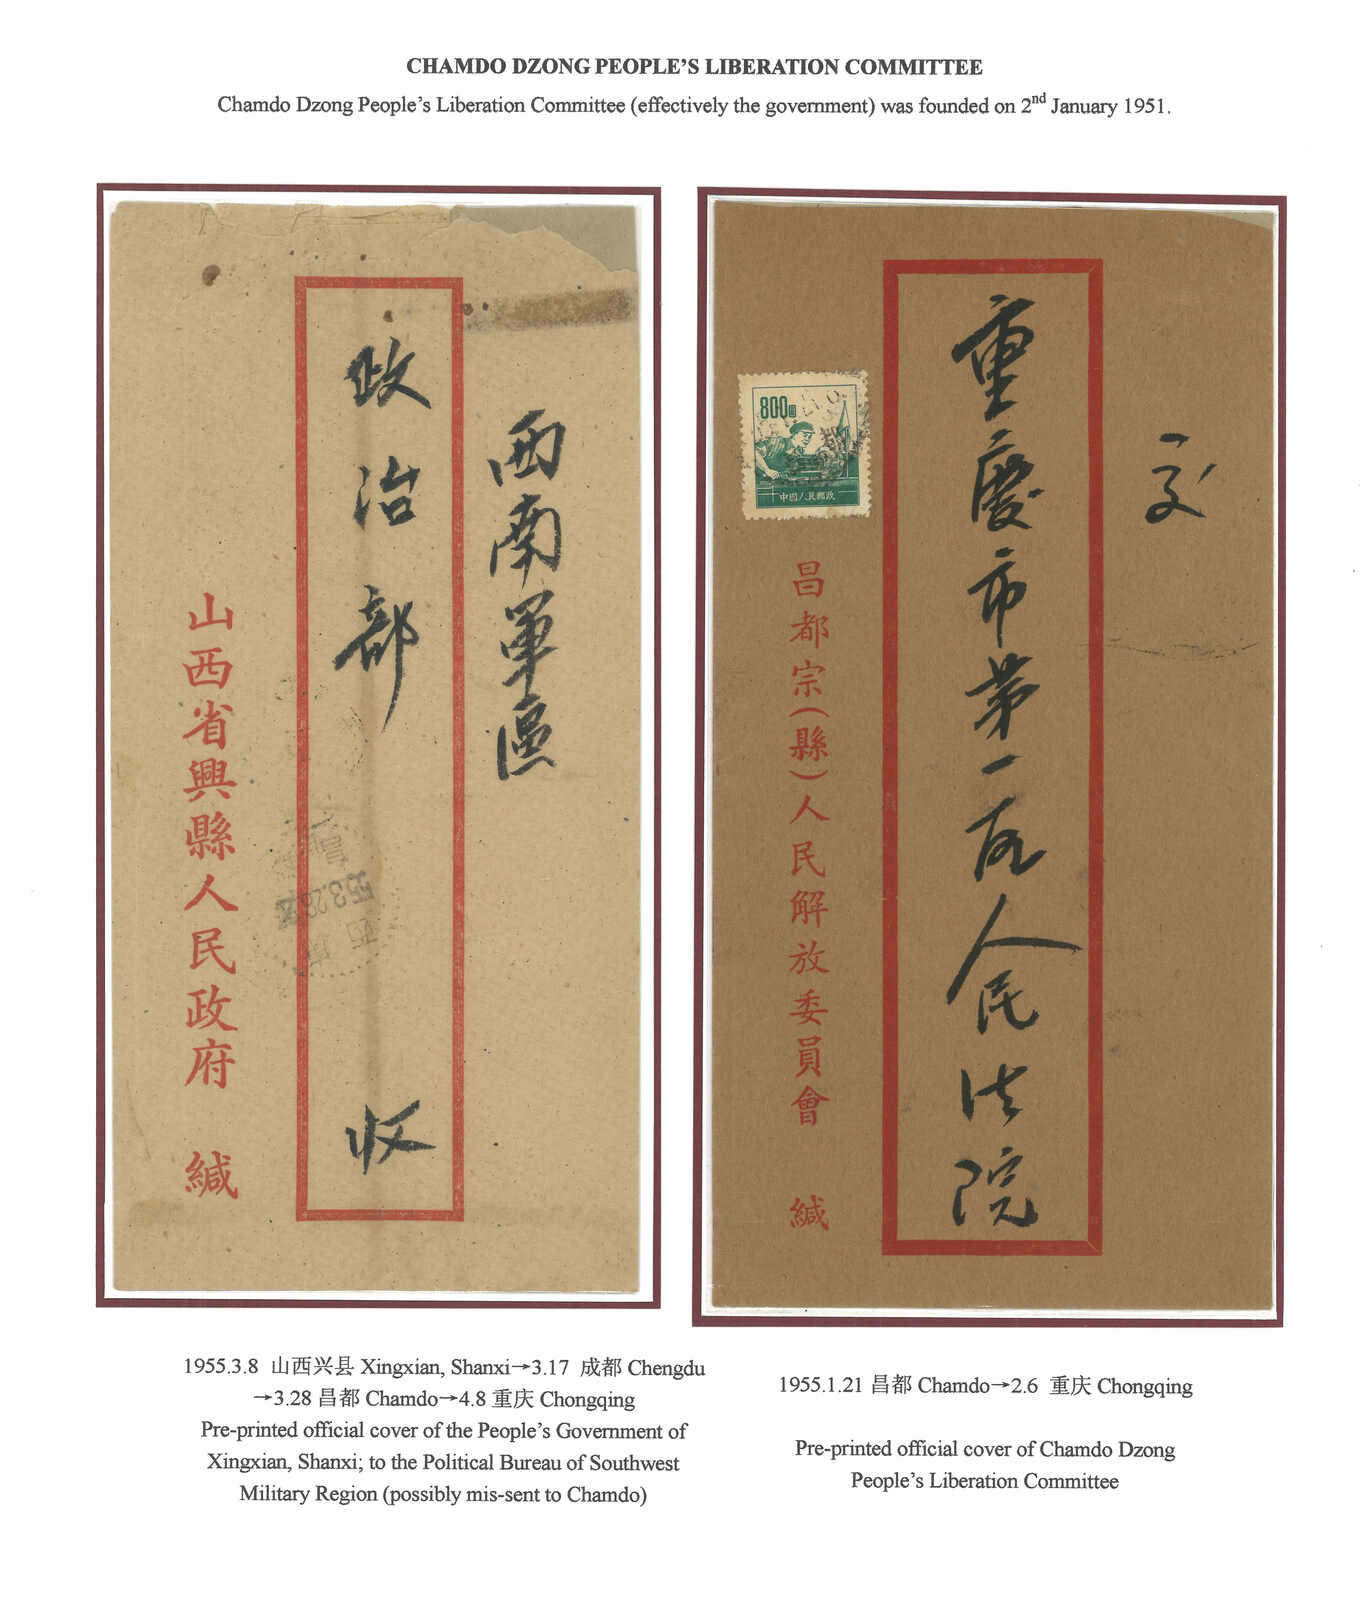 CHAMDO DZONG PEOPLE'S LIBERATION COMMITTEE
Chamdo Dzong People's Liberation Committee (effectively the government) was founded on 2nd January 1951.
西南軍區
政治部 收
山西省興縣人民政府 緘
55.3.28
昌
交
重慶市第一人民法院
800圓
中國人民郵政
都
昌都宗(縣)人民解放委員會 緘
1955.3.8 山西兴县 Xingxian, Shanxi→3.17 成都 Chengdu
→3.28 昌都 Chamdo→4.8 重庆 Chongqing
Pre-printed official cover of the People's Government of
Xingxian, Shanxi; to the Political Bureau of Southwest
Military Region (possibly mis-sent to Chamdo)
1955.1.21 昌都 Chamdo→2.6 重庆 Chongqing
Pre-printed official cover of Chamdo Dzong
People's Liberation Committee